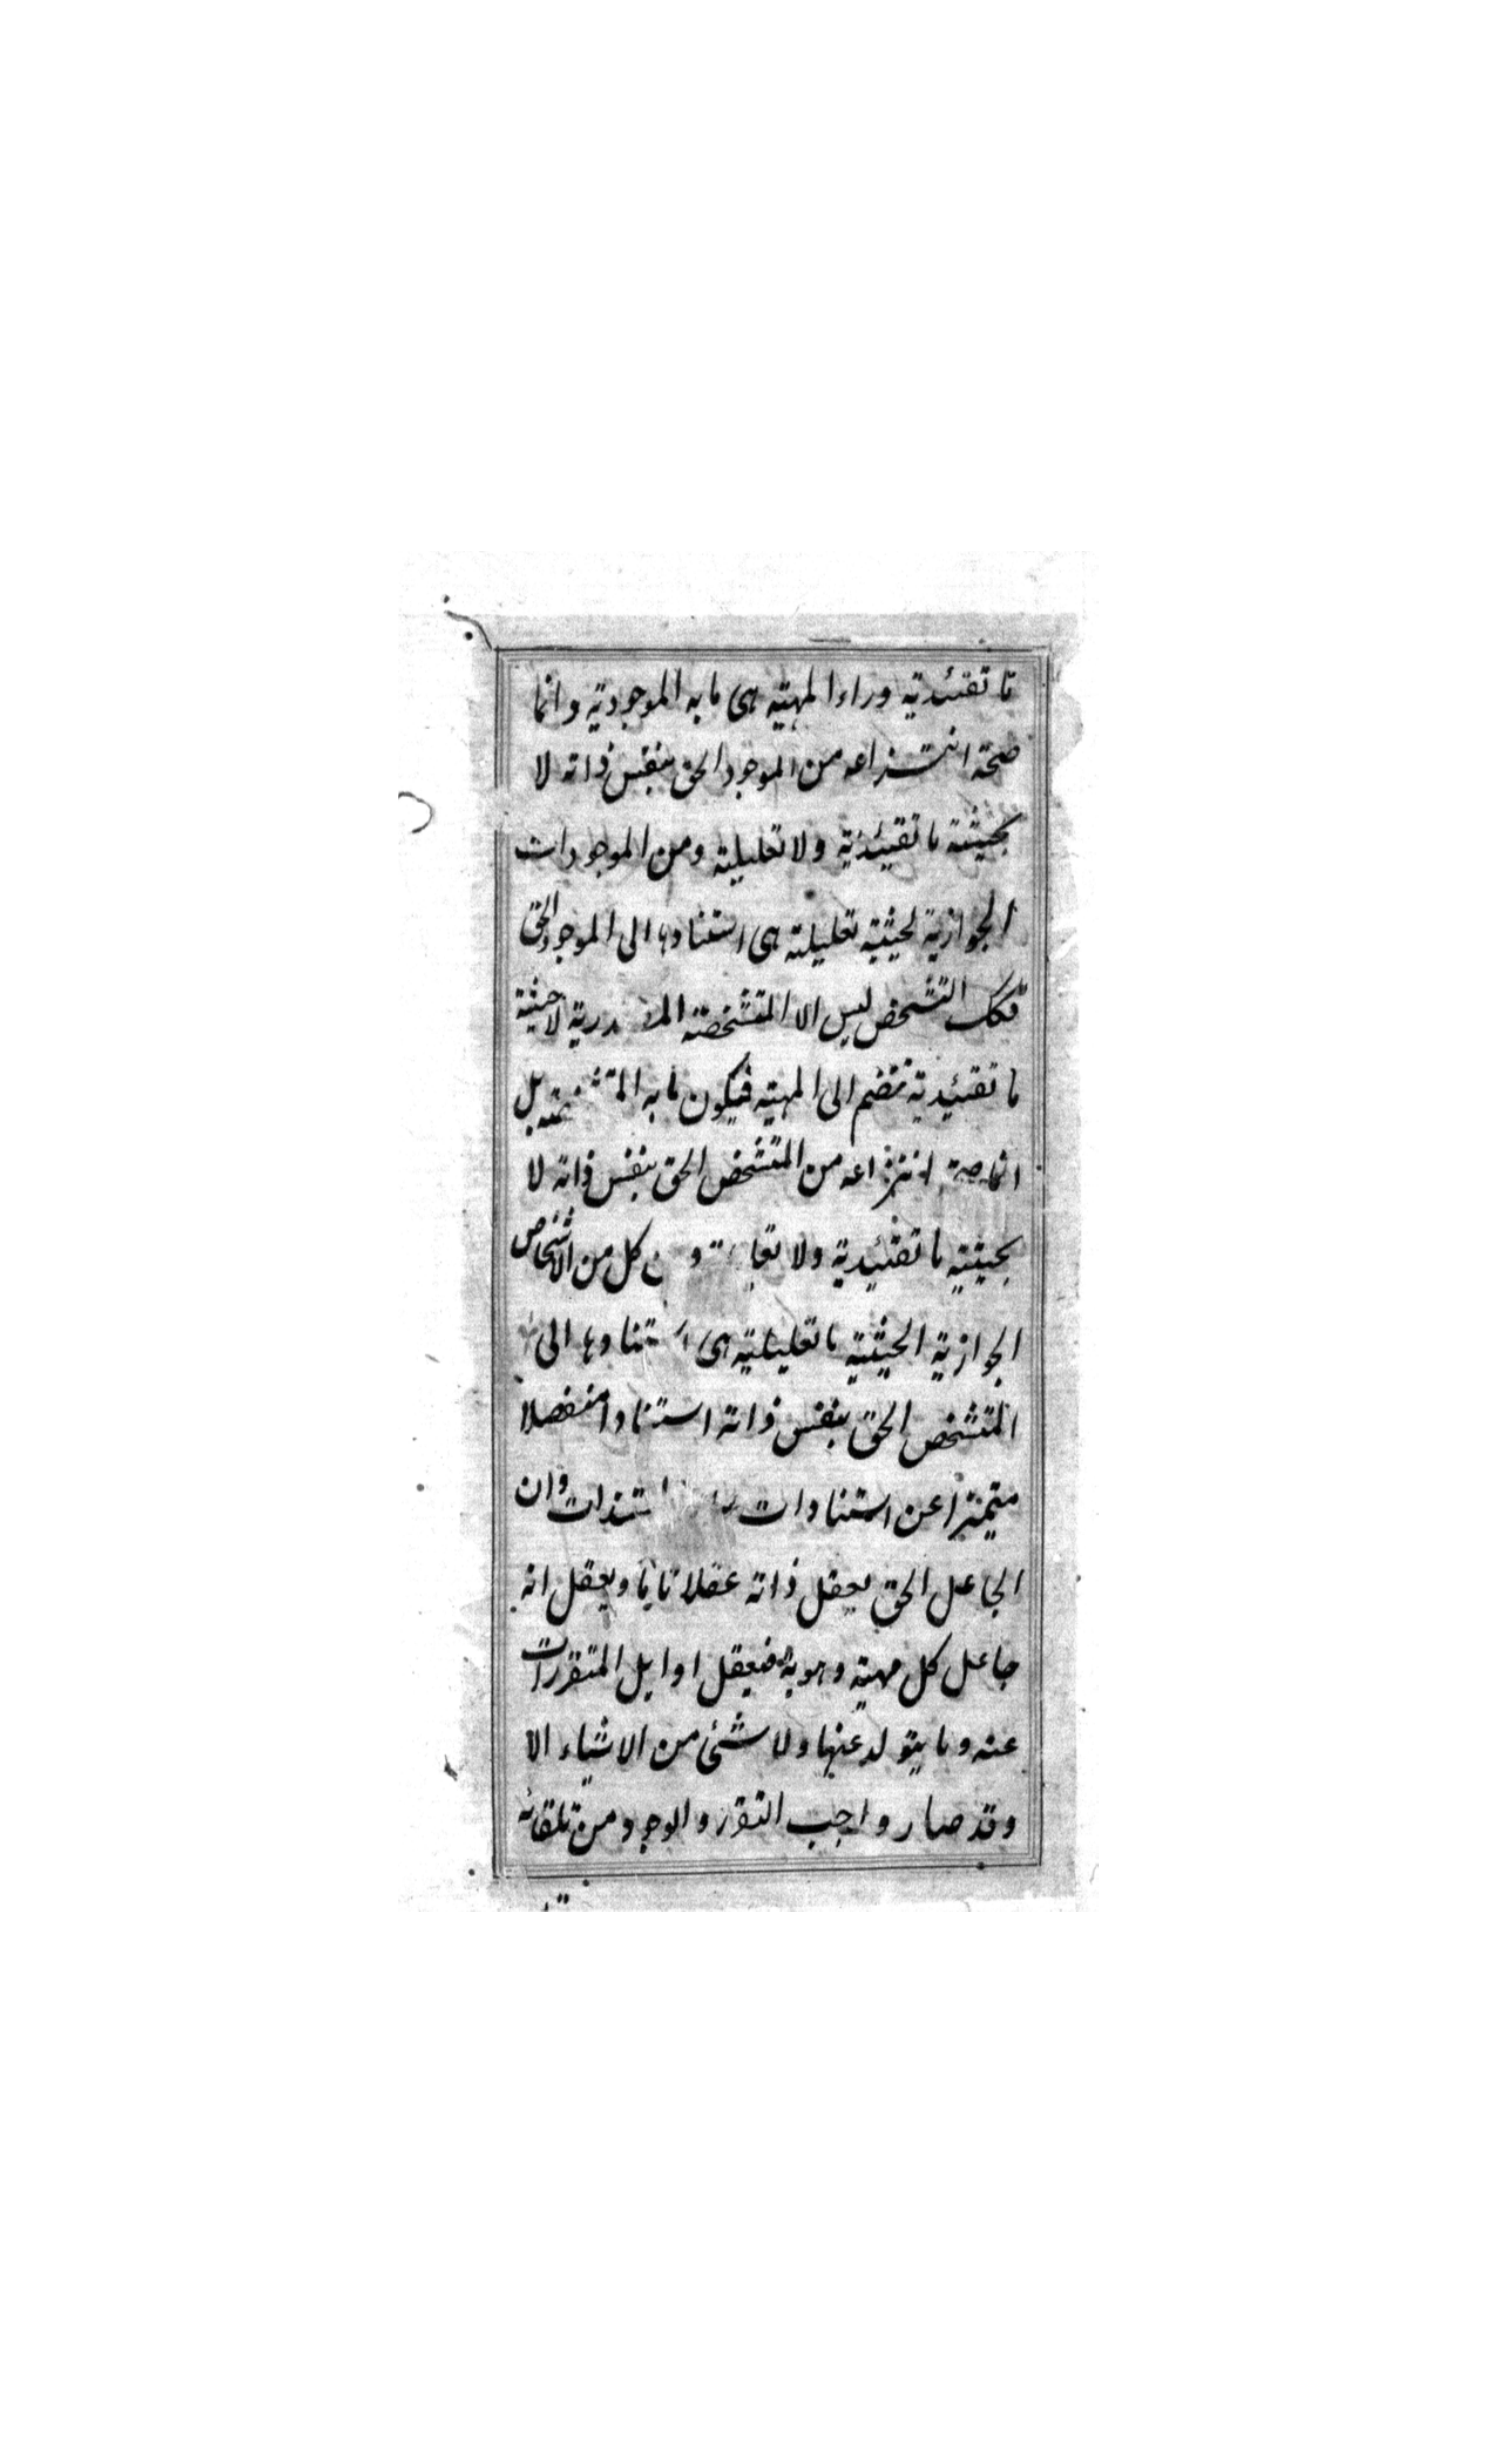 ما تقئيدية وراء المهية هى ما به الموجودية وانما
صحة انتزاعه من الموجود الحق بنفس ذاته لا
بحيثية ما تقييدية ولا تعليلية ومن الموجودات
الجوازية لحيثية تعليلية هى استنادها الى الموجود الحق
فكك التشخص ليس الا المتشخصية المصدرية لا حيثية
ما تقئيدية تنضم الى المهية فيكون ما به المتشخصية بل
انما صحة انتزاعه من المتشخص الحق بنفس ذاته لا
بحيثية ما تقئيدية ولا و كل من الاشخاص
الجوازية الحيثية ما تعليلية هى استنادها الى
المتشخص الحق بنفس ذاته استنادا منفصلا
متميزا عن استنادات وان
الجاعل الحق يعقل ذاته عقلا تاما ويعقل انه
جاعل كل مهية وهوية فيعقل اوايل المتقررات
عنه وما يتولد عنها ولا شئ من الاشياء الا
وقد صار واجب التقرر والوجود من تلقائه